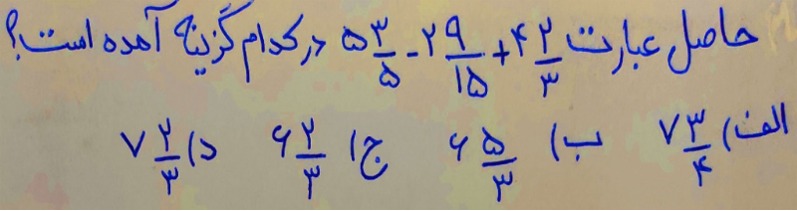 حاصل عبارت ۵ ۳/۵ - ۲ ۹/۱۵ + ۴ ۲/۳ در کدام گزینه آمده است؟
الف) ۷ ۳/۴ ب) ۶ ۵/۳ ج) ۶ ۲/۳ د) ۷ ۲/۳